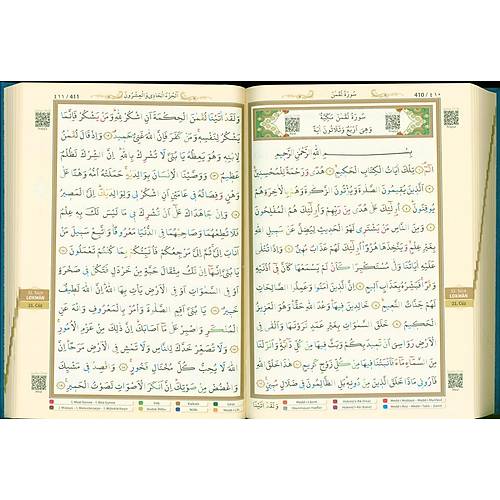 ٤١٠ / 410
سُورَةُ لُقْمٰنَ
سُورَةُ لُقْمٰنَ مَكِّيَّةٌ
وَهِيَ اَرْبَعٌ وَثَلَاثُونَ اٰيَةً
بِسْمِ اللّٰهِ الرَّحْمٰنِ الرَّحِيمِ
الٓمٓ ۝ تِلْكَ اٰيَاتُ الْكِتَابِ الْحَكِيمِ ۝ هُدًى وَرَحْمَةً لِلْمُحْسِنِينَ ۝
اَلَّذِينَ يُقِيمُونَ الصَّلٰوةَ وَيُؤْتُونَ الزَّكٰوةَ وَهُمْ بِالْاٰخِرَةِ هُمْ
يُوقِنُونَ ۝ اُولٰٓئِكَ عَلٰى هُدًى مِنْ رَبِّهِمْ وَاُولٰٓئِكَ هُمُ الْمُفْلِحُونَ ۝
وَمِنَ النَّاسِ مَنْ يَشْتَرِي لَهْوَ الْحَدِيثِ لِيُضِلَّ عَنْ سَبِيلِ اللّٰهِ
بِغَيْرِ عِلْمٍ وَيَتَّخِذَهَا هُزُوًا اُولٰٓئِكَ لَهُمْ عَذَابٌ مُهِينٌ ۝ وَاِذَا تُتْلٰى
عَلَيْهِ اٰيَاتُنَا وَلّٰى مُسْتَكْبِرًا كَاَنْ لَمْ يَسْمَعْهَا كَاَنَّ فِٓي اُذُنَيْهِ
وَقْرًا فَبَشِّرْهُ بِعَذَابٍ اَلِيمٍ ۝ اِنَّ الَّذِينَ اٰمَنُوا وَعَمِلُوا الصَّالِحَاتِ
لَهُمْ جَنَّاتُ النَّعِيمِ ۝ خَالِدِينَ فِيهَا وَعْدَ اللّٰهِ حَقًّا وَهُوَ الْعَزِيزُ
الْحَكِيمُ ۝ خَلَقَ السَّمٰوَاتِ بِغَيْرِ عَمَدٍ تَرَوْنَهَا وَاَلْقٰى فِي
الْاَرْضِ رَوَاسِيَ اَنْ تَمِيدَ بِكُمْ وَبَثَّ فِيهَا مِنْ كُلِّ دَٓابَّةٍ وَاَنْزَلْنَا
مِنَ السَّمَٓاءِ مَٓاءً فَاَنْبَتْنَا فِيهَا مِنْ كُلِّ زَوْجٍ كَرِيمٍ ۝ هٰذَا خَلْقُ اللّٰهِ
فَاَرُونِي مَاذَا خَلَقَ الَّذِينَ مِنْ دُونِهِ بَلِ الظَّالِمُونَ فِي ضَلَالٍ مُبِينٍ ۝
وَلَقَدْ اٰتَيْنَا
LOKMÂN
21. Cüz
اَلْجُزْءُ الْحَادِي وَالْعِشْرُونَ
٤١١ / 411
وَلَقَدْ اٰتَيْنَا لُقْمٰنَ الْحِكْمَةَ اَنِ اشْكُرْ لِلّٰهِ وَمَنْ يَشْكُرْ فَاِنَّمَا
يَشْكُرُ لِنَفْسِهِ وَمَنْ كَفَرَ فَاِنَّ اللّٰهَ غَنِيٌّ حَمِيدٌ ۝ وَاِذْ قَالَ لُقْمٰنُ
لِابْنِهِ وَهُوَ يَعِظُهُ يَا بُنَيَّ لَا تُشْرِكْ بِاللّٰهِ اِنَّ الشِّرْكَ لَظُلْمٌ
عَظِيمٌ ۝ وَوَصَّيْنَا الْاِنْسَانَ بِوَالِدَيْهِ حَمَلَتْهُ اُمُّهُ وَهْنًا عَلٰى
وَهْنٍ وَفِصَالُهُ فِي عَامَيْنِ اَنِ اشْكُرْ لِي وَلِوَالِدَيْكَ اِلَيَّ الْمَصِيرُ ۝
وَاِنْ جَاهَدَاكَ عَلٰٓى اَنْ تُشْرِكَ بِي مَا لَيْسَ لَكَ بِهِ عِلْمٌ
فَلَا تُطِعْهُمَا وَصَاحِبْهُمَا فِي الدُّنْيَا مَعْرُوفًا وَاتَّبِعْ سَبِيلَ مَنْ
اَنَابَ اِلَيَّ ثُمَّ اِلَيَّ مَرْجِعُكُمْ فَاُنَبِّئُكُمْ بِمَا كُنْتُمْ تَعْمَلُونَ ۝
يَا بُنَيَّ اِنَّهَا اِنْ تَكُ مِثْقَالَ حَبَّةٍ مِنْ خَرْدَلٍ فَتَكُنْ فِي صَخْرَةٍ
اَوْ فِي السَّمٰوَاتِ اَوْ فِي الْاَرْضِ يَأْتِ بِهَا اللّٰهُ اِنَّ اللّٰهَ لَطِيفٌ
خَبِيرٌ ۝ يَا بُنَيَّ اَقِمِ الصَّلٰوةَ وَأْمُرْ بِالْمَعْرُوفِ وَانْهَ عَنِ
الْمُنْكَرِ وَاصْبِرْ عَلٰى مَٓا اَصَابَكَ اِنَّ ذٰلِكَ مِنْ عَزْمِ الْاُمُورِ ۝
وَلَا تُصَعِّرْ خَدَّكَ لِلنَّاسِ وَلَا تَمْشِ فِي الْاَرْضِ مَرَحًا اِنَّ
اللّٰهَ لَا يُحِبُّ كُلَّ مُخْتَالٍ فَخُورٍ ۝ وَاقْصِدْ فِي مَشْيِكَ
وَاغْضُضْ مِنْ صَوْتِكَ اِنَّ اَنْكَرَ الْاَصْوَاتِ لَصَوْتُ الْحَمِيرِ ۝
LOKMÂN
21. Cüz